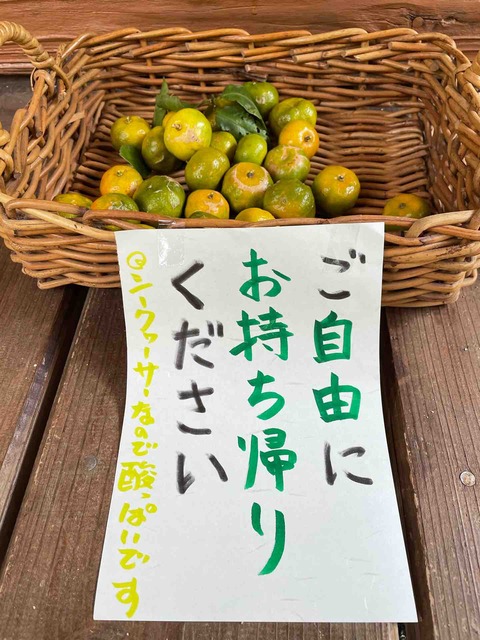 ご自由に
お持ち帰り
ください
@シークヮーサーなので酸っぱいです